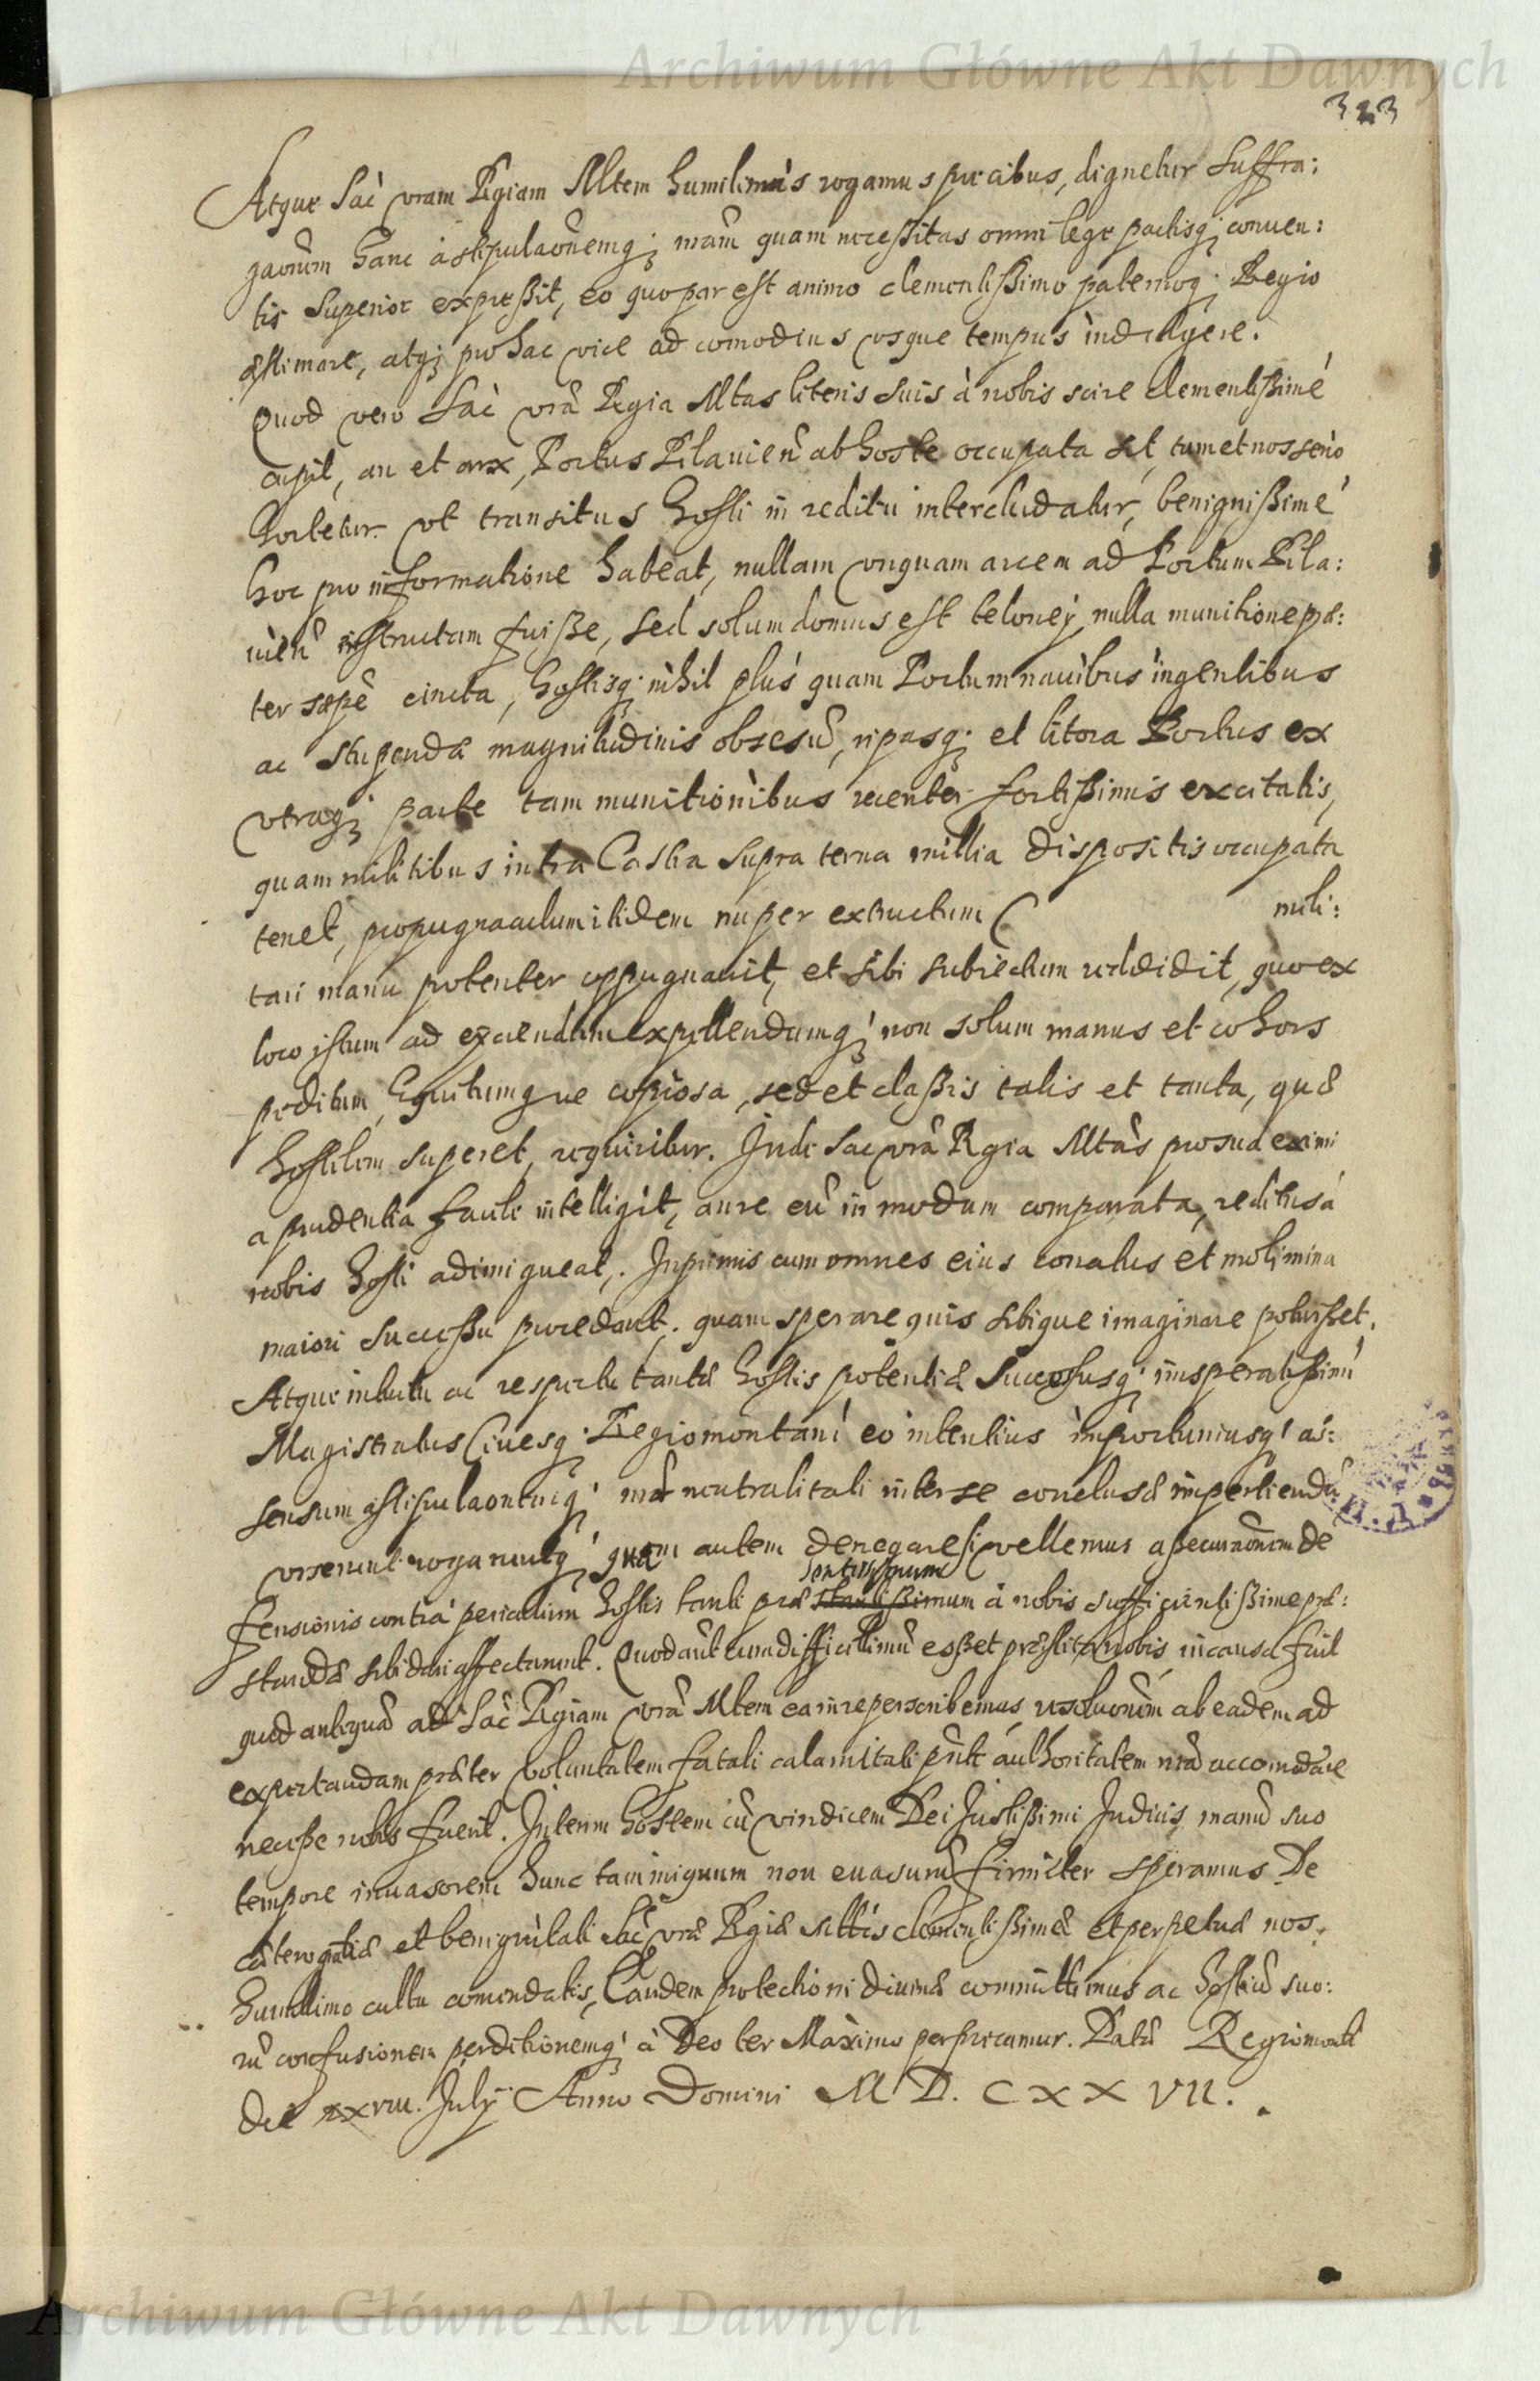 Archiwum Główne Akt Dawnych
323
Atque Sac vram Rgiam Mtem humilimis rogamus precibus, dignetur suffra:
gaonem hanc astipulaonemq; nram quam necessitas omni lege pactisq; conuen:
tis superior expressit, eo quo par est animo clementissimo paternoq; Regio
æstimare, atq; pro hac vice ad comodius vsque tempus indulgere.
Quod vero Sac vra Rgia Mtas literis suis à nobis scire clementissimé
cupit, an et arx, Portus Pilauien ab hoste occupata sit, tum et nos serio
hortetur vt transitus hosti in reditu intercludatur, benignissimé
hoc pro informatione habeat, nullam vnquam arcem ad Portum Pila:
uien instructam fuisse, sed solum domus est telonej nulla munitione præ:
ter sæpe cincta, hostisq; nihil plus quam Portum nauibus ingentibus
ac stupendæ magnitudinis obsesu, ripasq; et litora Portus ex
vtraq; parte tam munitionibus recenter fortissimis excitatis,
quam militibus intra Castra supra terna millia dispositis occupata
tenet, propugnaculum itidem nuper extructum ( mili:
tari manu potenter oppugnauit, et sibi subiectum reddidit, quo ex
loco istum ad eijciendum expellendumq; non solum manus et cohors
peditum, Equitumque copiosa, sed et classis talis et tanta, quæ
hostilem superet, requiritur. Inde Sac vra Rgia Mtas pro sua eximi
a prudentia facile intelligit, an re eu in modum comparata, reditus á
nobis hosti adimi queat,. Inprimis cum omnes eius conatus et molimina
maiori successu procedant. quam sperare quis sibique imaginare potuisset.
Atque intuitu ac respectu tantæ hostis potentiæ Successusq; insperatissimi
Magistratus Ciuesq; Regiomontani eo intentius importuniusq; as:
sensum astipulaontmq; nræ neutralitati inter se conclusæ impertiendu
vrserunt rogaruntq; quam autem denegare si vellemus assecuraonem de
fensionis contra periculum hostis tanti præ stantissimum sentissimum à nobis sufficientissime præ:
standæ sibi dari affectarunt. Quod aut cum difficillimu esset præstitu nobis in causa fuit
quod antequa ad Sac Rgiam vra Mtem ea in re perscribemus resoluonem ab eadem ad
expectandam præter voluntatem fatali calamitati pnti authoritatem nra accomodare
necesse nobis fuerit. Interim hostem cu vindicem Dei Iustissimi Iudicis manu suo
tempore inuasorem hunc tam iniquum non euasuru firmiter speramus. De
cætero gratiæ et benignitati Sac vræ Rgiæ Mttis clementissimæ et perpetuæ nos
humillimo cultu comendatis, Eandem protectioni diuinæ committimus ac hostiu suo:
ru confusionem perditionemq; à Deo ter Maximo perprecamur. Datu Regiomonti
die xxviii. Julij Anno Domini M D. C X X VII.
Archiwum Główne Akt Dawnych